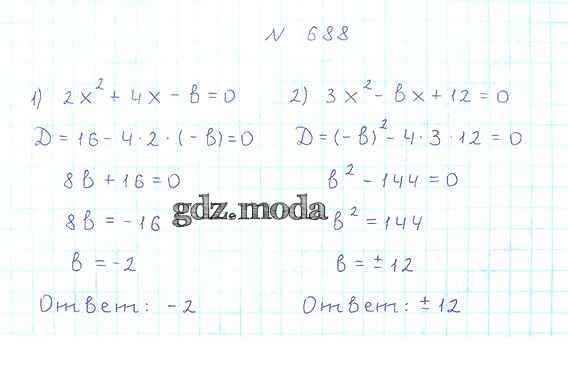 N 688
1) 2x² + 4x - в = 0
D = 16 - 4·2·(-в) = 0
8в + 16 = 0
8в = -16
в = -2
Ответ: -2
2) 3x² - вx + 12 = 0
D = (-в)² - 4·3·12 = 0
в² - 144 = 0
в² = 144
в = ±12
Ответ: ±12
gdz.moda